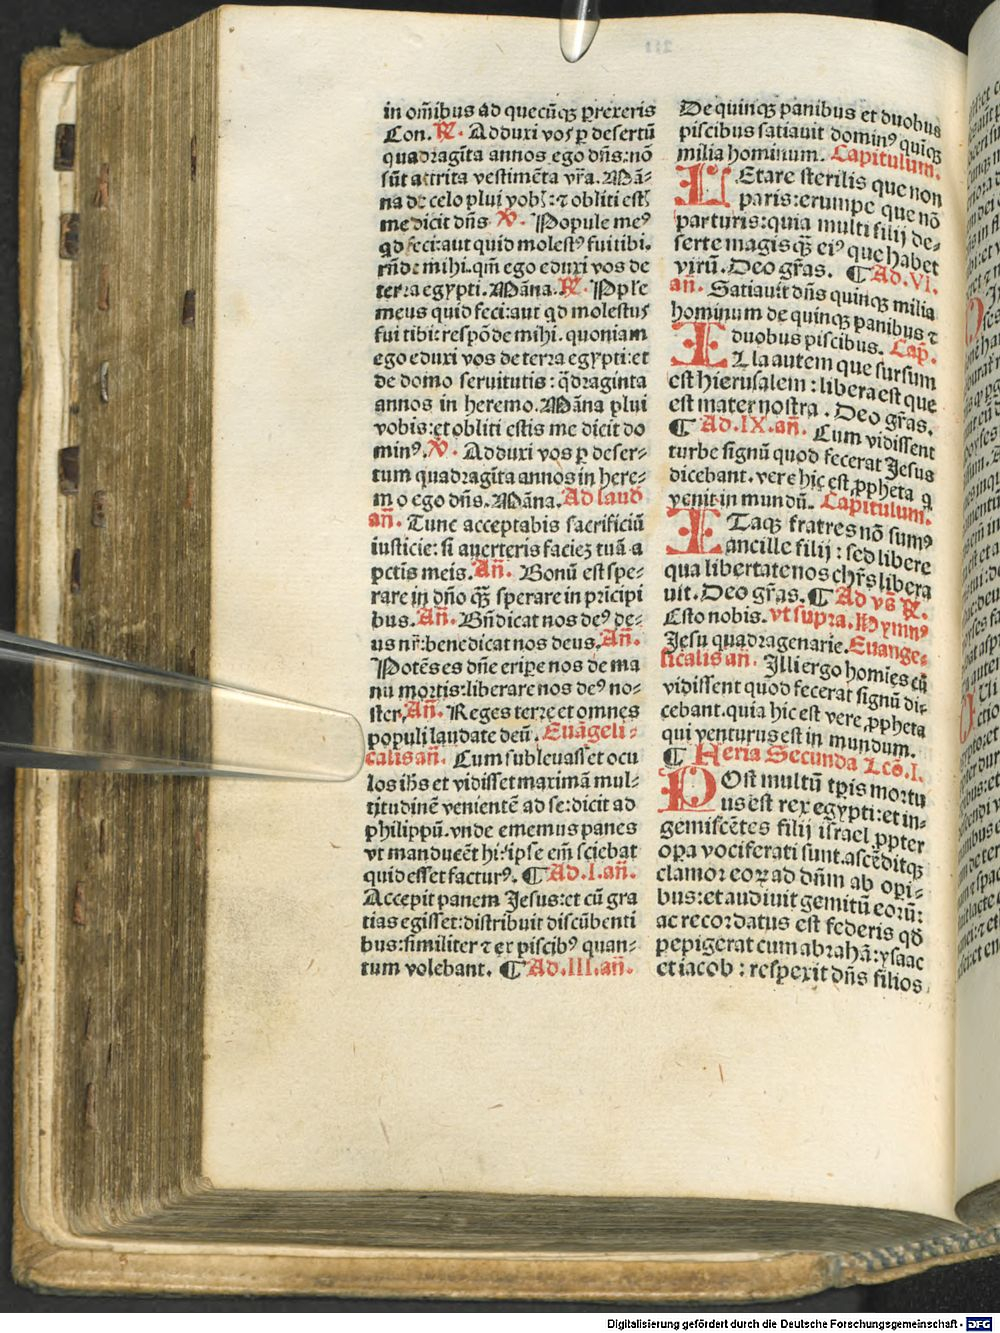 in om̄ibus ad quecūqꝫ ꝑrexeris
Con. ℟. Adduxi vos ꝑ desertū
quadragīta annos ego dn̄s: nō
sūt attrita vestimēta vr̄a. Mā-
na de celo plui vob̄: ⁊ obliti estꝭ
me dicit dn̄s ℣. Popule meꝰ
qd feci: aut quid molestꝰ fui tibi.
rn̄de mihi. qm̄ ego eduxi vos de
terra egypti. Māna. ℟. Pople
meus quid feci: aut qd molestus
fui tibi: respōde mihi. quoniam
ego eduxi vos de terra egypti: et
de domo seruitutis: q̄draginta
annos in heremo. Māna plui
vobis: et obliti estis me dicit do
minꝰ. ℣. Adduxi vos ꝑ deser-
tum quadragīta annos in here-
mo ego dn̄s. Māna. Ad laud
an̄. Tunc acceptabis sacrificiū
iusticie: si auerteris faciez tuā a
pctīs meis. An̄. Bonū est spe-
rare in dn̄o qꝫ̄ sperare in pricipi
bus. An̄. Bn̄dicat nos deꝰ de-
us nr̄: benedicat nos deus. An̄.
Potēs es dn̄e eripe nos de ma
nu mortis: liberare nos deꝰ no-
ster. An̄. Reges terre et omnes
populi laudate deū. Euāgeli-
calis an̄. Cum subleuasset ocu
los ih̄s et vidisset maximā mul-
titudinē venientē ad se: dicit ad
philippū. vnde ememus panes
vt manducēt hi: ipse em̄ sciebat
quid esset facturꝰ. ¶ Ad. I. an̄.
Accepit panem Jesus: et cū gra
tias egisset: distribuit discūbenti
bus: similiter ⁊ ex piscibꝰ quan-
tum volebant. ¶ Ad. III. an̄.
De quinqꝫ panibus et duobus
piscibus satiauit dominꝰ quiqꝫ
milia hominum. Capitulum.
LEtare sterilis que non
paris: erumpe que nō
parturis: quia multi filij de-
serte magis qꝫ̄ eiꝰ que habet
virū. Deo gr̄as. ¶ Ad. VI.
an̄. Satiauit dn̄s quinqꝫ milia
hominum de quinqꝫ panibus ⁊
duobus piscibus. Cap̄.
ILla autem que sursum
est hierusalem: libera est que
est mater nostra. Deo gr̄as.
¶ Ad. IX. an̄. Cum vidissent
turbe signū quod fecerat Jesus
dicebant. vere hic est ꝓpheta q
venit in mundū. Capitulum.
ITaqꝫ fratres nō sumꝰ
ancille filij: sed libere
qua libertate nos chr̄s libera
uit. Deo gr̄as. ¶ Ad vs̄ ℟.
Esto nobis. vt supra. Hymnꝰ
Jesu quadragenarie. Euange-
licalis an̄. Illi ergo homīes cū
vidissent quod fecerat signū di-
cebant. quia hic est vere ꝓpheta
qui venturus est in mundum.
¶ Feria Secunda Lcō. I.
POst multū tp̄is mortu
us est rex egypti: et in-
gemiscētes filij israel ꝓpter
opera vociferati sunt. ascēditqꝫ
clamor eoꝝ ad dn̄m ab opi-
bus: et audiuit gemitū eorū:
ac recordatus est federis qd̄
pepigerat cum abrahā: ysaac
et iacob: respexit dn̄s filios
Digitalisierung gefördert durch die Deutsche Forschungsgemeinschaft - DFG